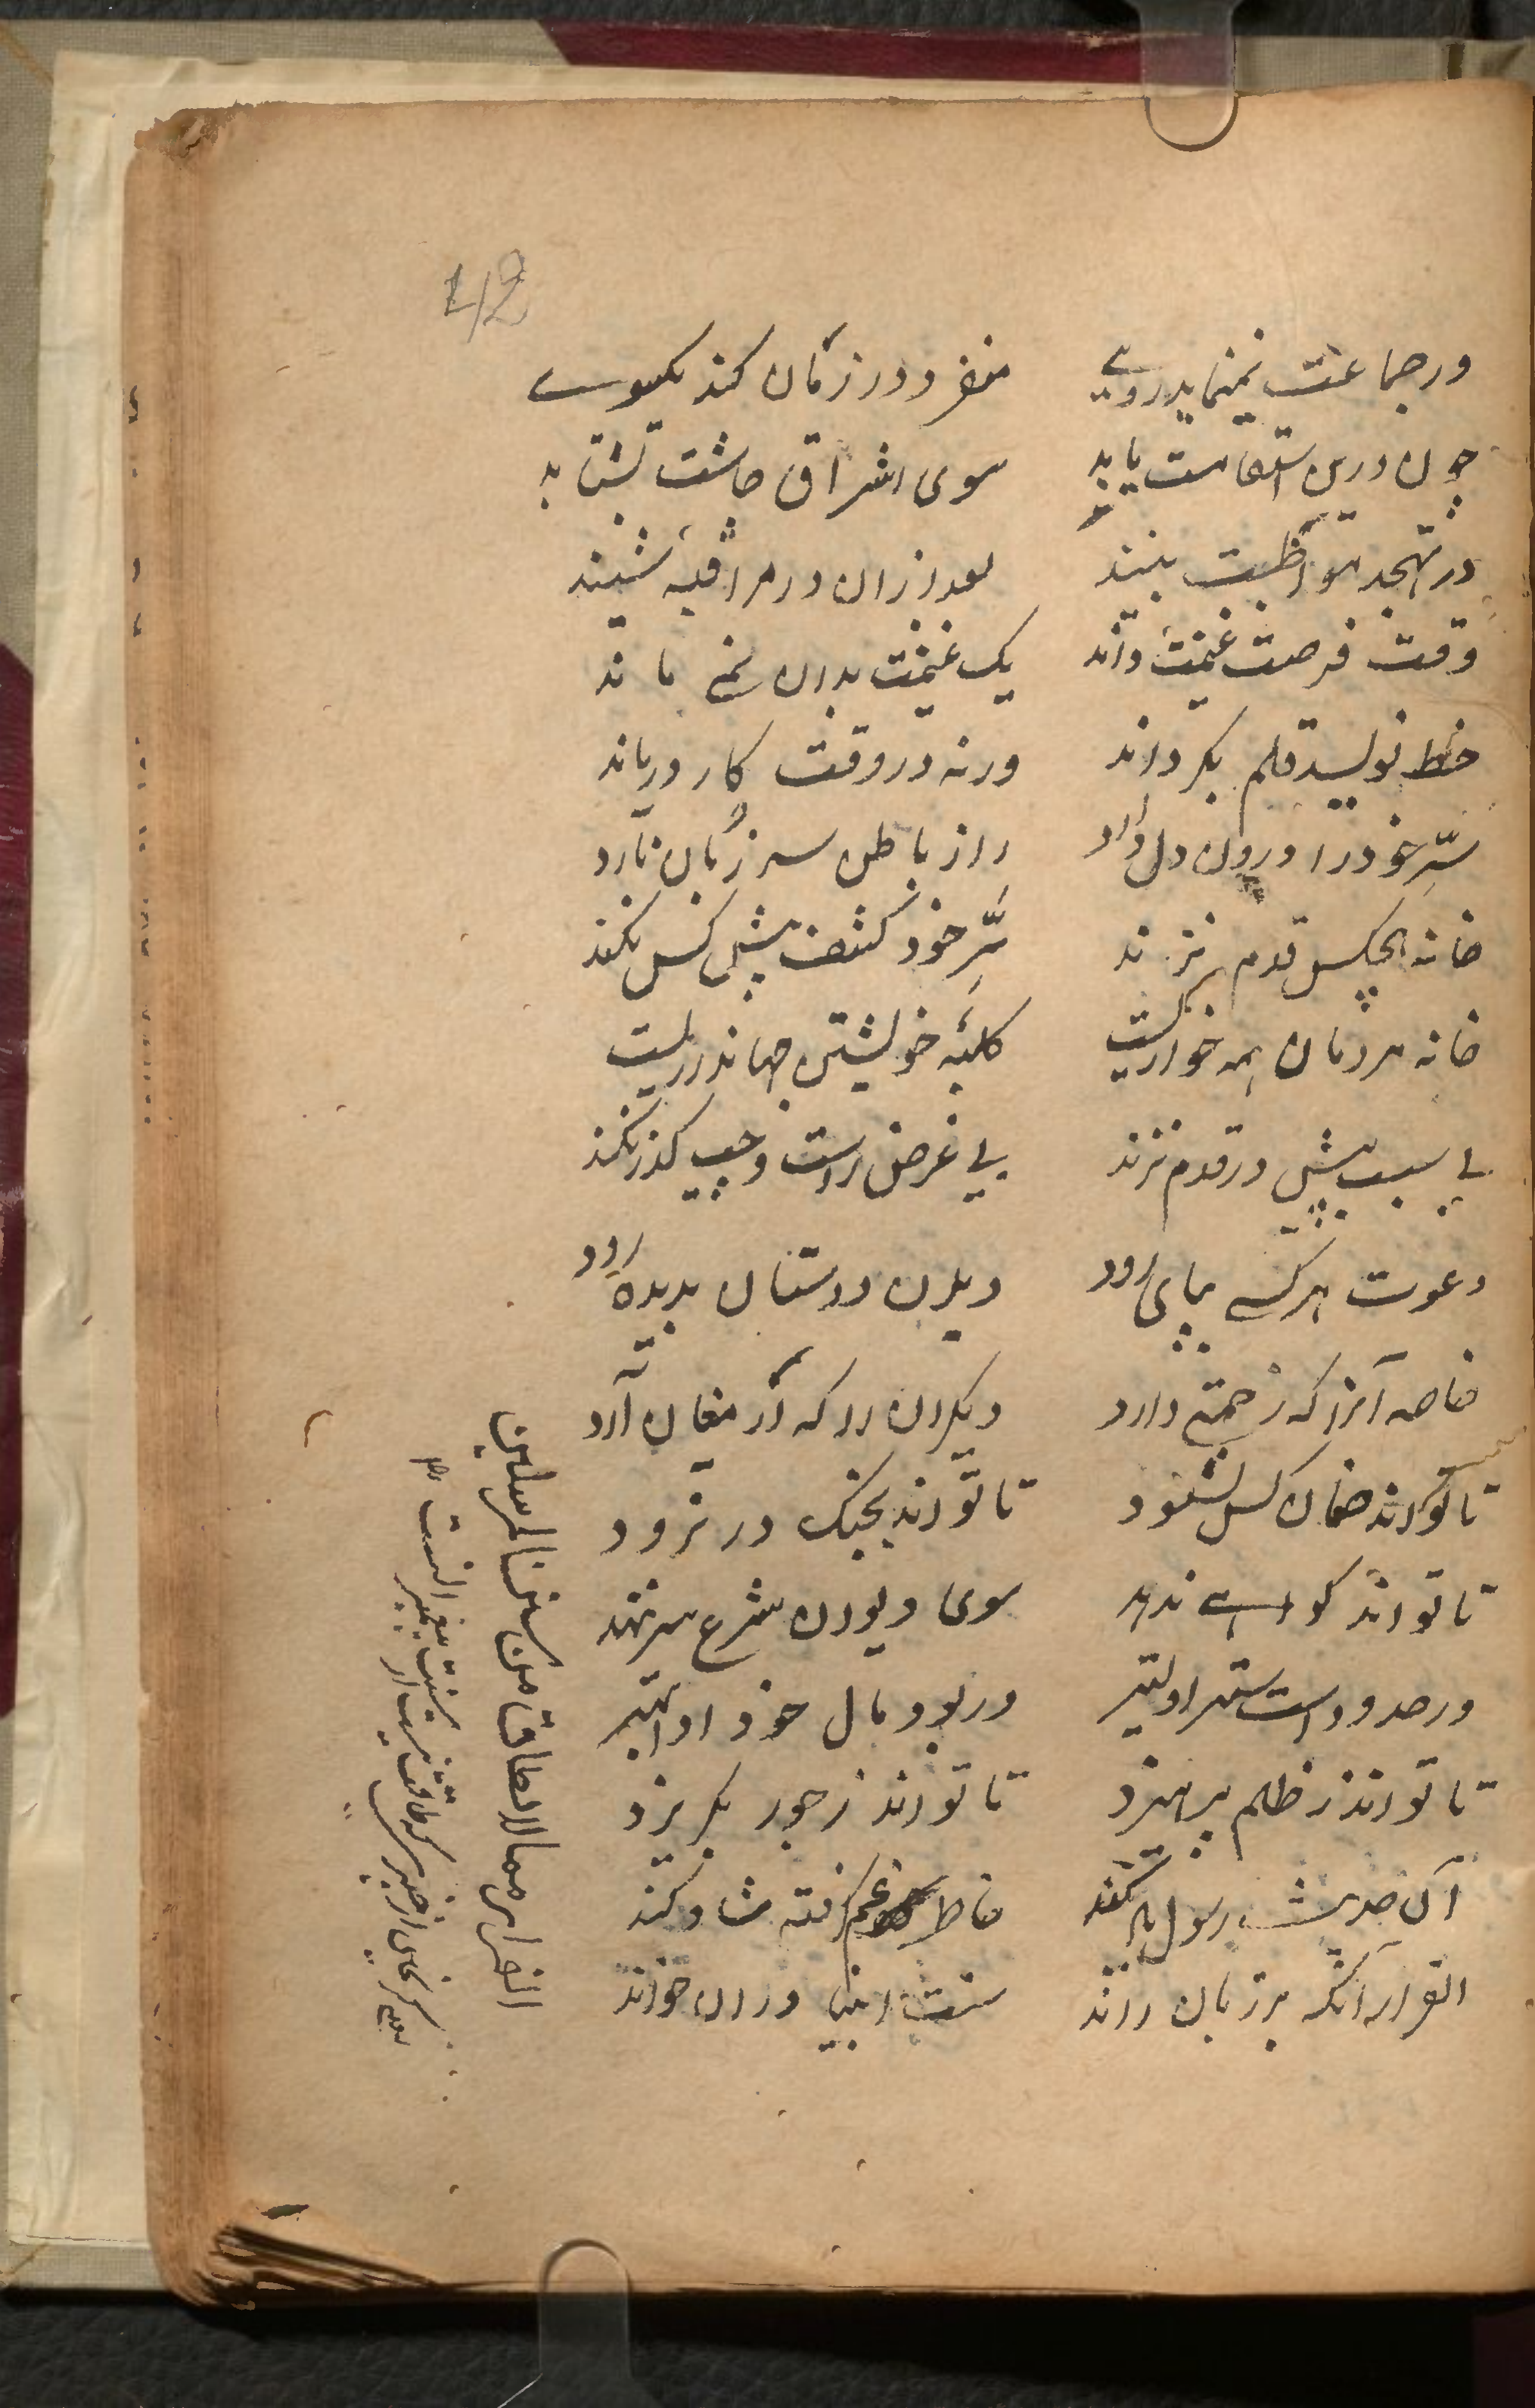 42
در جماعت نمی‌نماید روی منفرد در زمان کند یکسوی
چون درین استقامت یابد سوی اشراق چاشت بشتابد
در تهجد مواظبت بیند بعد ازان در مراقبه شیند
وقت فرصت غنیمت داند یک غنیمت بدان نمی ماند
خط نویسد قلم بگرداند ورنه در وقت کار درماند
سِرّ خود را درون دل دارد راز باطن سر زبان نارد
خانه هیچکس قدم نزند سِرّ خود کشف پیش کس نکند
خانه مردمان همه خواریست کلبۀ خویشتن جهانداریست
بی سبب پیش در قدم نزند بی غرض راست و چپ گذر نکند
دعوت هر کسے بپای رود دیدن دوستان بدیده رود
خاصه آنرا که زحمتی دارد دیگران را که ارمغان آرد
تا تواند ضمان کس نشود تا تواند بجنگ در نرود
تا تواند گواهے ندهد سوی دیوان شرع سر ننهد
در حدود است ستر اولیتر ور بود مال خود ادا بهتر
تا تواند ز ظلم پرهیزد تا تواند ز جور بگریزد
آن حدیث رسول یاد کند خاطر غم گرفته شاد کند
الفرار آنکه بر زبان راند سنت انبیا در ان خواند
الفرار مما لا یطاق من سنن المرسلین
یعنی گریختن از چیزی که طاقت نیست از سنت پیغمبر انست ۱۲